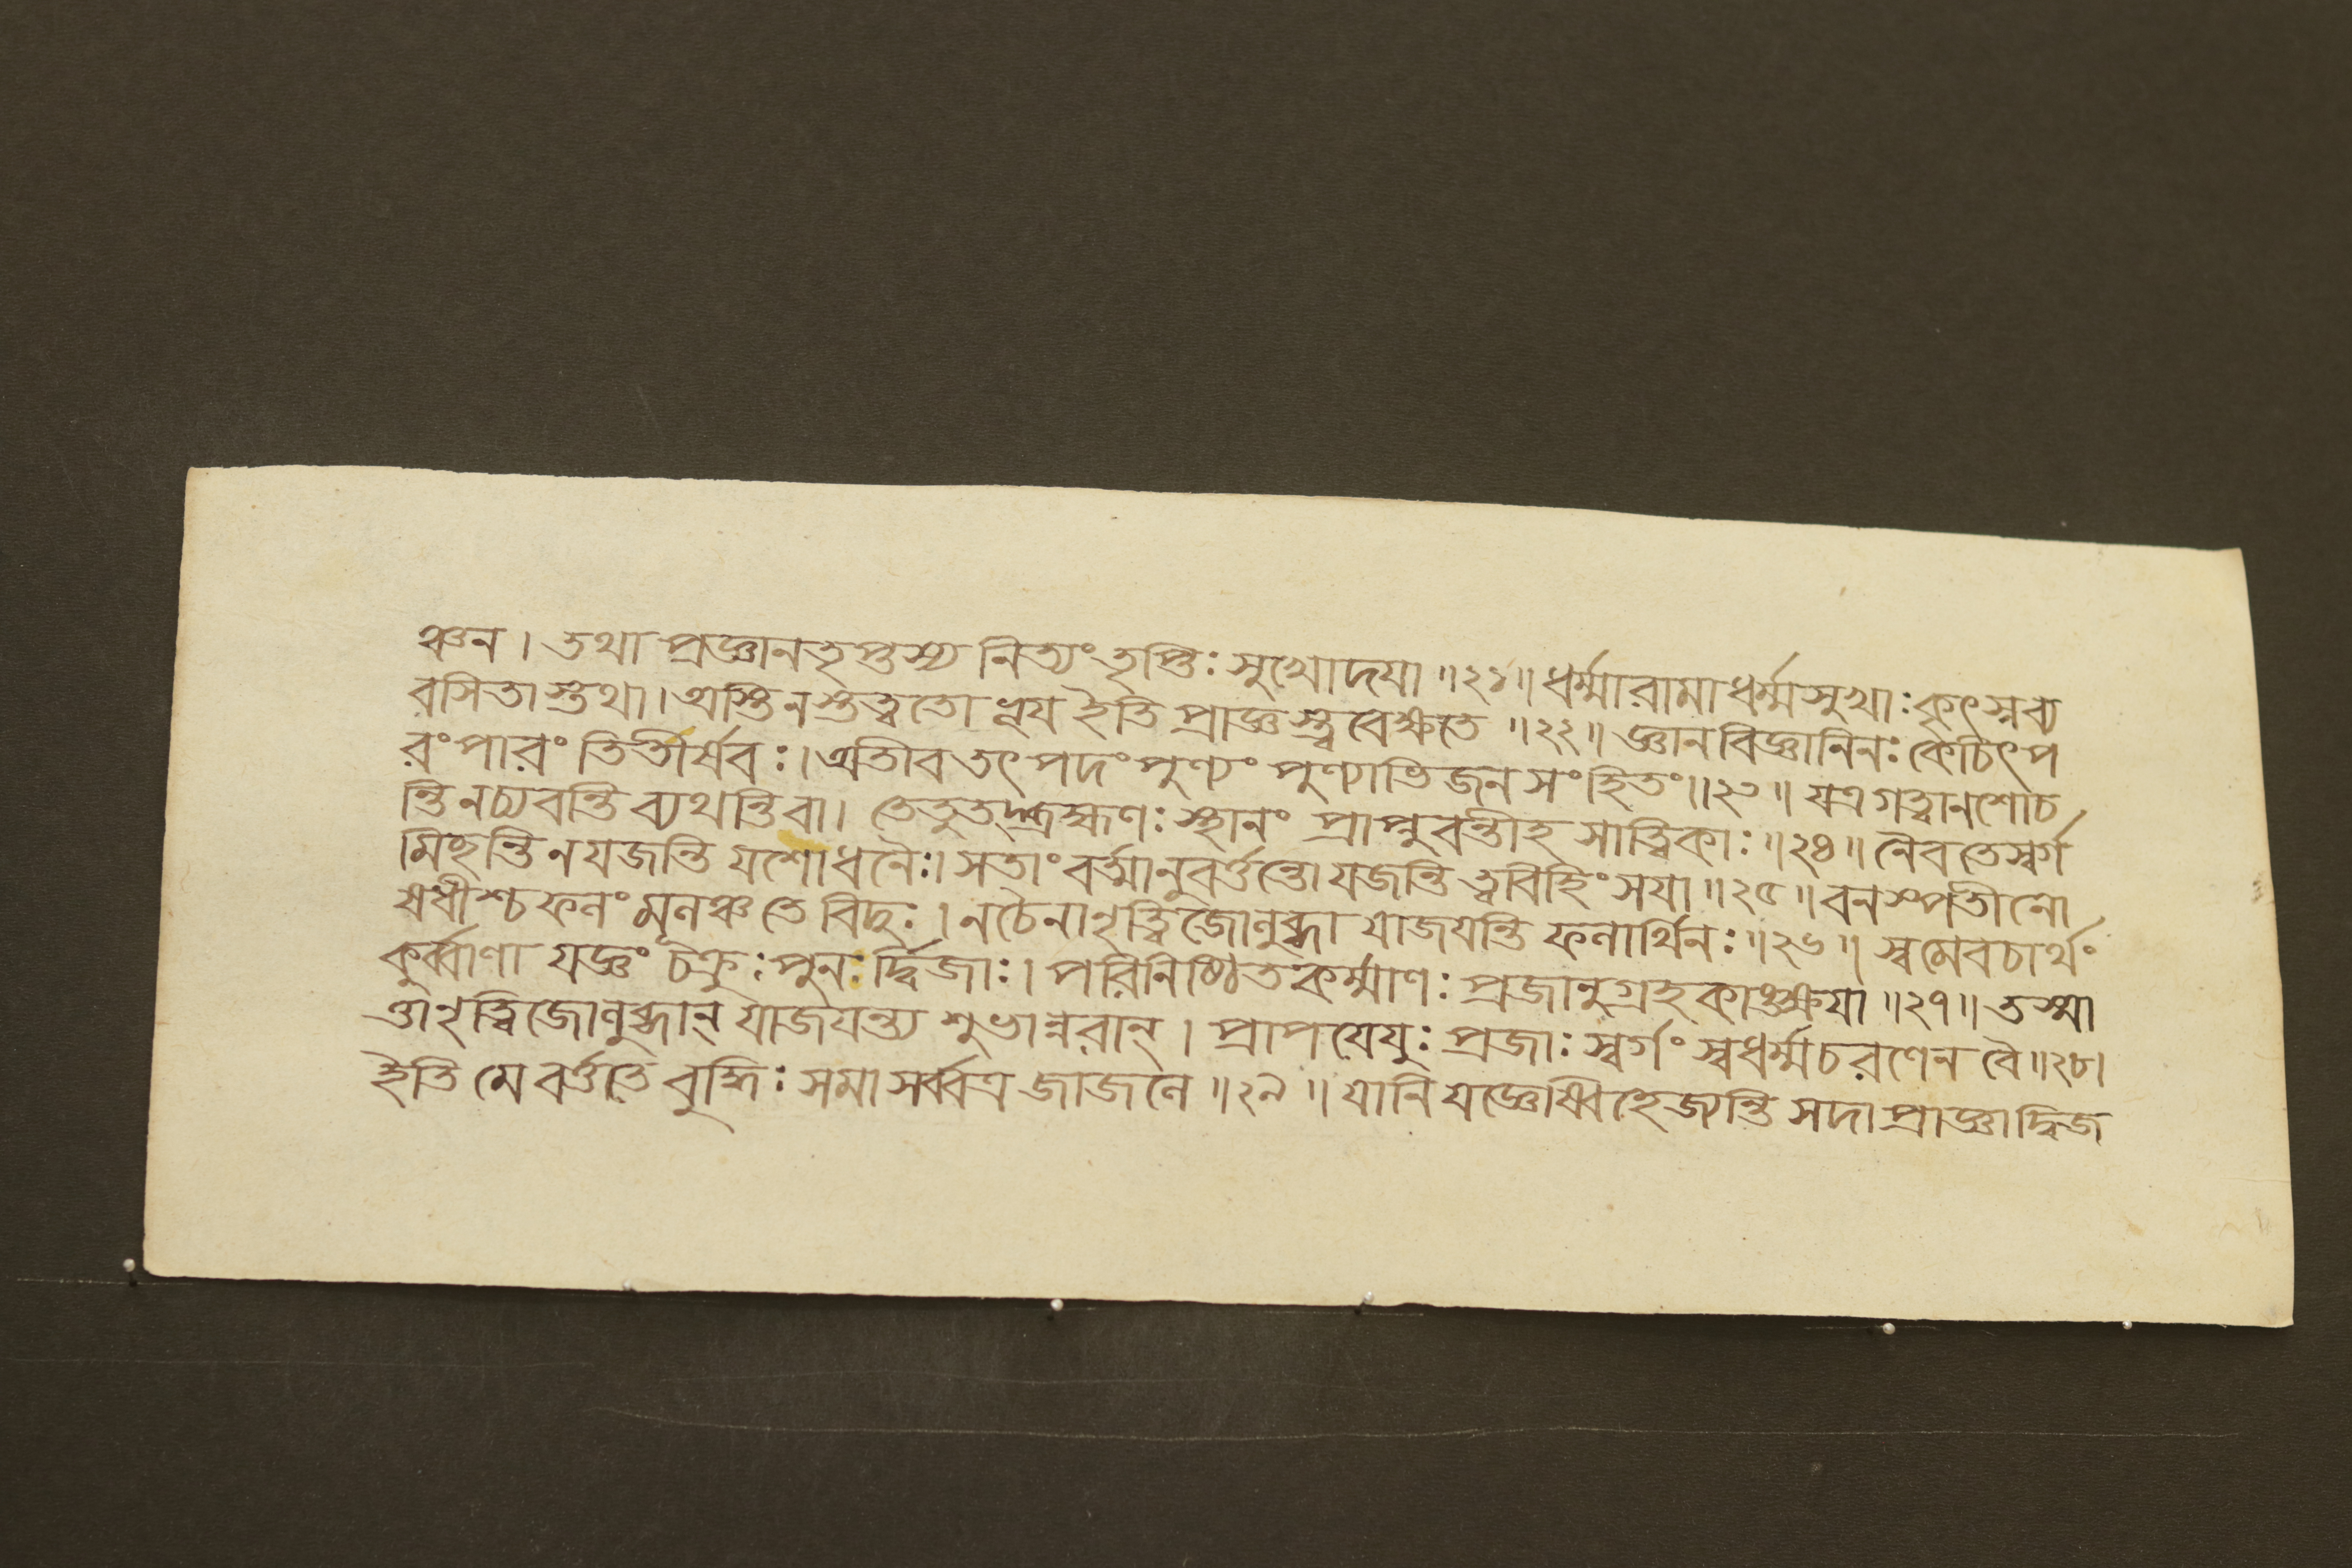 ঞ্চন। তথা প্রজ্ঞানতৃপ্তস্য নিত্যং তৃপ্তিঃ সুখোদযা॥২১॥ ধর্ম্মারামা ধর্ম্মসুখাঃ কৃৎস্নব্য
বসিতাস্তথা। অস্তি নস্তত্ত্বতো ভূয ইতি প্রাজ্ঞস্ত্ববেক্ষতে॥২২॥ জ্ঞানবিজ্ঞানিনঃ কেচিৎ প
রং পারং তিতীর্ষবঃ। অতীব তৎ পদং পুণ্যং পুণ্যাভিজনসংহিতং॥২৩॥ যত্র গত্বা ন শোচ
ন্তি ন চ্যবন্তি ব্যথন্তি বা। তে তু তদ্ব্রহ্মণঃ স্থানং প্রাপ্নুবন্তীহ সাত্ত্বিকাঃ॥২৪॥ নৈব তে স্বর্গ
মিছন্তি ন যজন্তি যশোধনৈঃ। সতাং বর্ত্মানুবর্ত্তন্তো যজন্তি ত্ববিহিংসযা॥২৫॥ বনস্পতীনো
ষধীশ্চ ফলং মূলঞ্চ তে বিদুঃ। ন চৈনানৃত্বিজো লুব্ধা যাজযন্তি ফলার্থিনঃ॥২৬॥ স্বমেব চার্থং
কুর্ব্বাণা যজ্ঞং চক্রুঃ পুনঃ র্দ্বিজাঃ। পরিনিষ্ঠিতকর্ম্মাণঃ প্রজানুগ্রহকাঙ্ক্ষযা॥২৭॥ তস্মা
ত্তানৃত্বিজো লুব্ধান্ যাজযন্ত্যশুভান্নরান্। প্রাপযেযুঃ প্রজাঃ স্বর্গং স্বধর্ম্মচরণেন বৈ॥২৮।
ইতি মে বর্ত্ততে বুদ্ধিঃ সমা সর্ব্বত্র জাজলে॥২৯॥ যানি যজ্ঞেষ্বিহেজ্যন্তি সদা প্রাজ্ঞা দ্বিজ